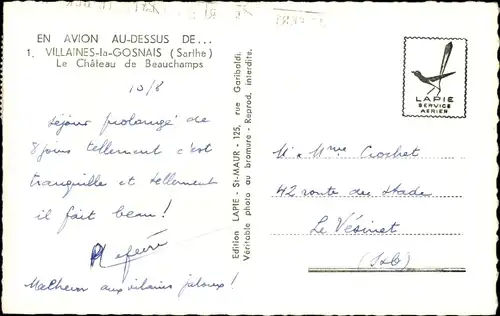 EN AVION AU-DESSUS DE...
1. VILLAINES-la-GOSNAIS (Sarthe)
Le Château de Beauchamps
10/8
séjour prolongé de
8 jours tellement c'est
tranquille et tellement
il fait beau!
Malheur aux vilains jaloux!
Edition LAPIE - St-MAUR - 125, rue Garibaldi.
Véritable photo au bromure - Reprod. interdite.
LAPIE
SERVICE
AERIEN
M. Mme Crochet
42 route des Stades
Le Vésinet
(S&O)